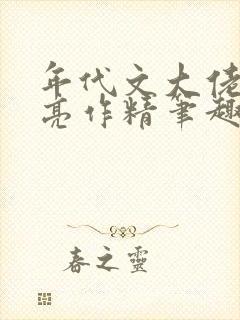 年代文大佬
亮作精笔趣
春之灵